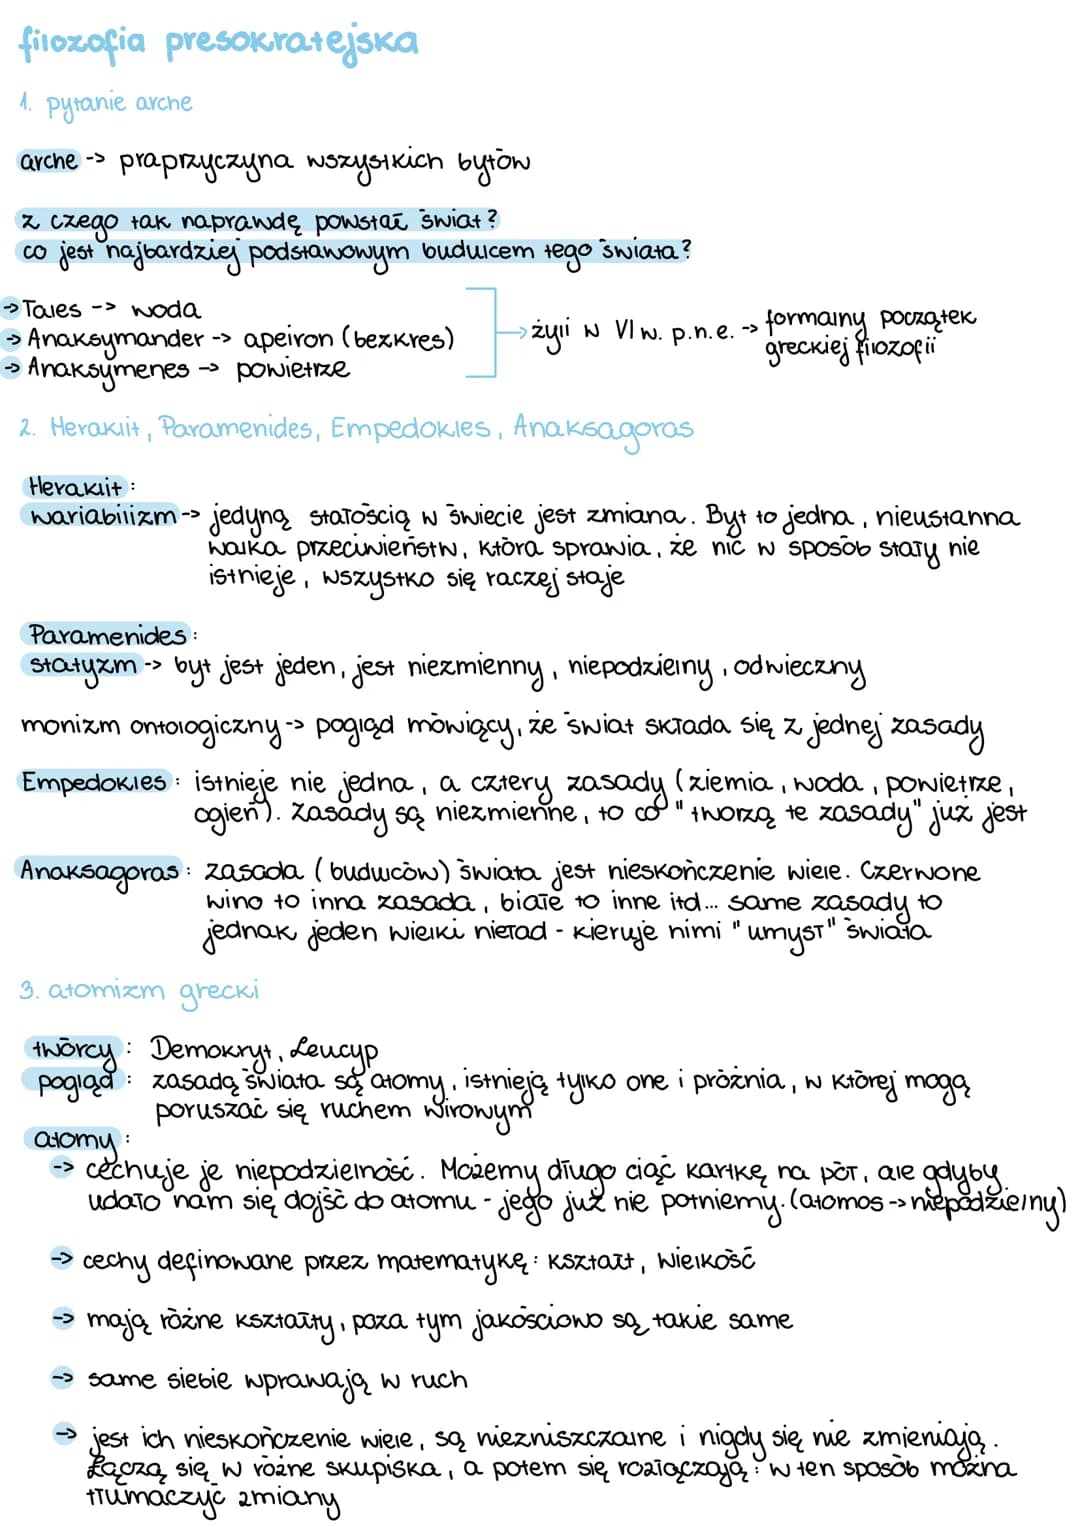 filozofia presokratejska
1. pytanie arche
arche -> praprzyczyna wszystkich bytów
z czego tak naprawdę powstał świat?
co jest najbardziej podstawowym budulcem tego świata?
-> Tales -> woda
-> Anaksymander -> apeiron (bezkres)
-> Anaksymenes -> powietrze
-> żyli w VI w. p.n.e. -> formalny początek
greckiej filozofii
2. Heraklit, Paramenides, Empedokles, Anaksagoras
Heraklit:
wariabilizm -> jedyną stałością w świecie jest zmiana. Byt to jedna, nieustanna
walka przeciwieństw, która sprawia, że nic w sposób stały nie
istnieje, wszystko się raczej staje
Paramenides:
statyzm -> byt jest jeden, jest niezmienny, niepodzielny, odwieczny
monizm ontologiczny -> pogląd mówiący, że świat składa się z jednej zasady
Empedokles: istnieje nie jedna, a cztery zasady (ziemia, woda, powietrze,
ogień). Zasady są niezmienne, to co "tworzą te zasady" już jest
Anaksagoras: zasada (budulców) świata jest nieskończenie wiele. Czerwone
wino to inna zasada, białe to inne itd... same zasady to
jednak jeden wielki nieład - kieruje nimi "umysł" świata
3. atomizm grecki
twórcy: Demokryt, Leucyp
pogląd: zasadą świata są atomy, istnieją tylko one i próżnia, w której mogą
poruszać się ruchem wirowym
atomy:
-> cechuje je niepodzielność. Możemy długo ciąć kartkę na pół, ale gdyby
udało nam się dojść do atomu - jego już nie potniemy. (atomos -> niepodzielny)
-> cechy definowane przez matematykę: kształt, wielkość
-> mają różne kształty, poza tym jakościowo są takie same
-> same siebie wprawają w ruch
-> jest ich nieskończenie wiele, są niezniszczalne i nigdy się nie zmieniają.
Łączą się w różne skupiska, a potem się rozłączają: w ten sposób można
tłumaczyć zmiany